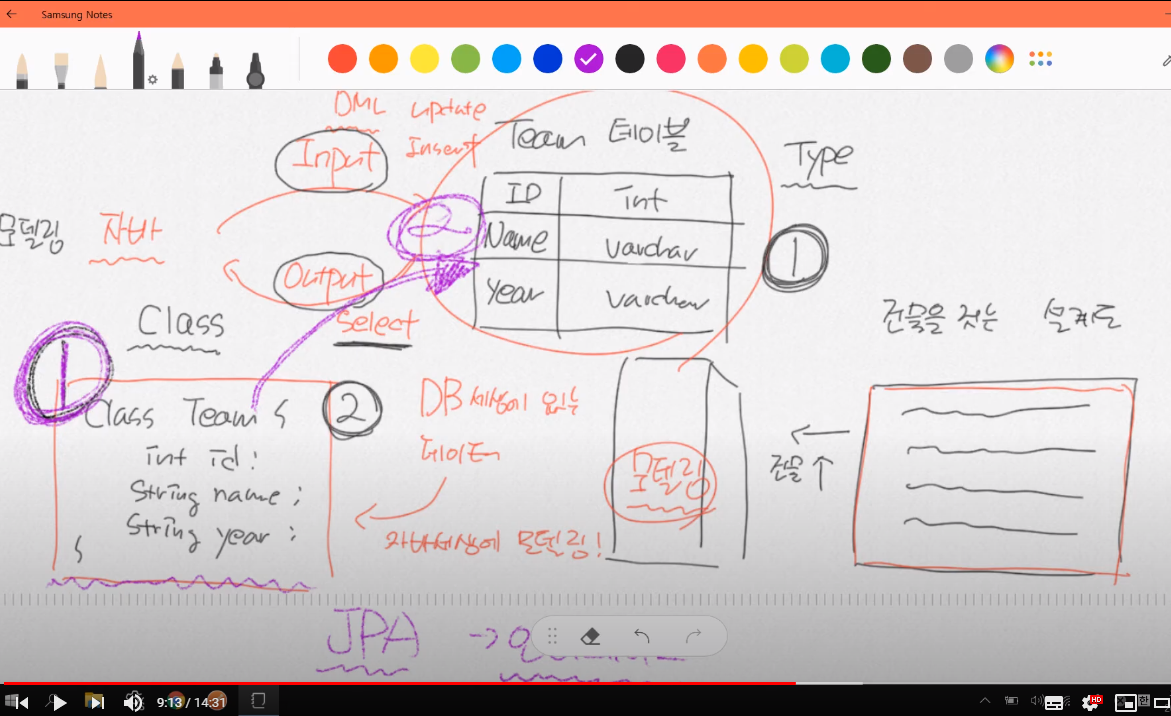 Samsung Notes
DML update
Input Insert
Team 테이블
Type
ID int
Name varchar
Year varchar
1
2
모델링 자바
Output
Select
Class
1
Class Team {
int id;
String name;
String year;
}
2
DB세상에 있는
데이터
자바세상에 모델링!
모델링
건물을 짓는 설계도
건물 ↑
JPA →
9:13 / 14:31
HD